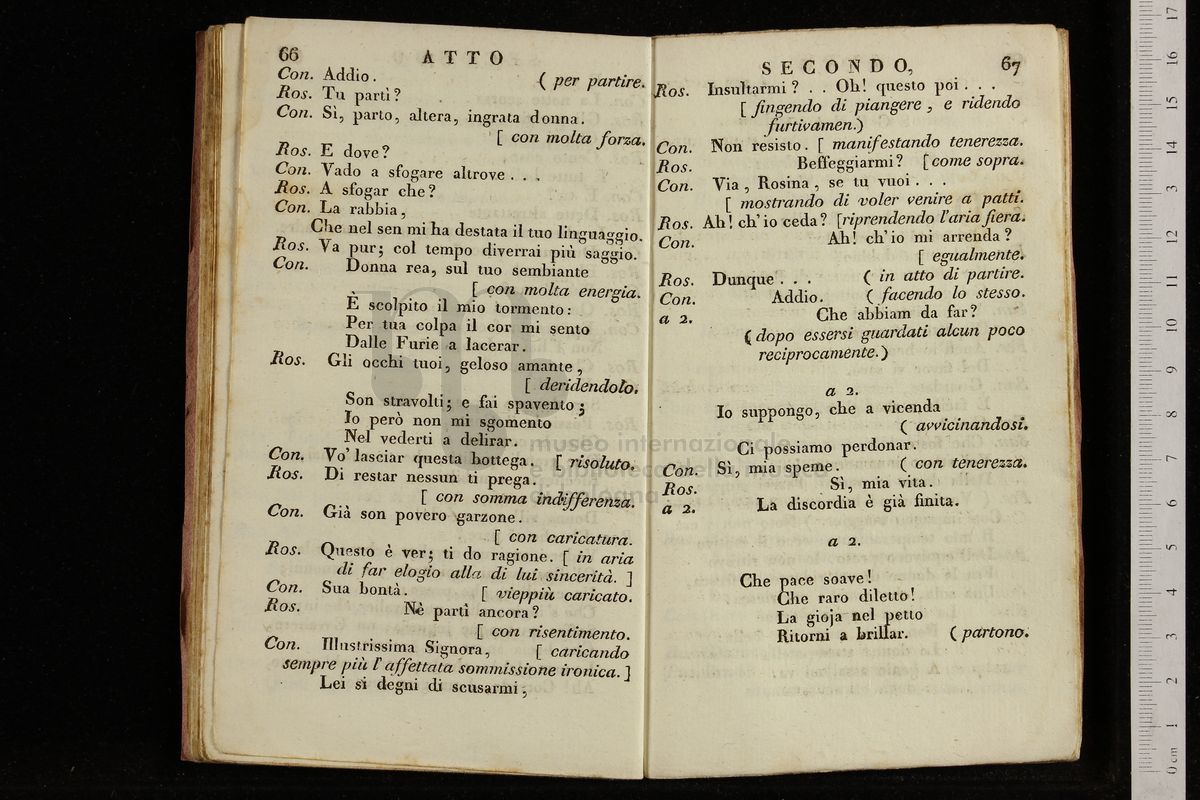 66
ATTO
Con. Addio. ( per partire.
Ros. Tu parti?
Con. Sì, parto, altera, ingrata donna.
[ con molta forza.
Ros. E dove?
Con. Vado a sfogare altrove . . .
Ros. A sfogar che?
Con. La rabbia,
Che nel sen mi ha destata il tuo linguaggio.
Ros. Va pur; col tempo diverrai più saggio.
Con. Donna rea, sul tuo sembiante
[ con molta energia.
È scolpito il mio tormento:
Per tua colpa il cor mi sento
Dalle Furie a lacerar.
Ros. Gli occhi tuoi, geloso amante,
[ deridendolo.
Son stravolti; e fai spavento;
Io però non mi sgomento
Nel vederti a delirar.
Con. Vo' lasciar questa bottega. [ risoluto.
Ros. Di restar nessun ti prega.
[ con somma indifferenza.
Con. Già son povero garzone.
[ con caricatura.
Ros. Questo è ver; ti do ragione. [ in aria
di far elogio alla di lui sincerità. ]
Con. Sua bontà. [ vieppiù caricato.
Ros. Nè parti ancora?
[ con risentimento.
Con. Illustrissima Signora, [ caricando
sempre più l'affettata sommissione ironica. ]
Lei si degni di scusarmi,
SECONDO,
67
Ros. Insultarmi? . . Oh! questo poi . . .
[ fingendo di piangere, e ridendo
furtivamen.)
Con. Non resisto. [ manifestando tenerezza.
Ros. Beffeggiarmi? [ come sopra.
Con. Via, Rosina, se tu vuoi . . .
[ mostrando di voler venire a patti.
Ros. Ah! ch'io ceda? [riprendendo l'aria fiera.
Con. Ah! ch'io mi arrenda?
[ egualmente.
Ros. Dunque . . . ( in atto di partire.
Con. Addio. ( facendo lo stesso.
a 2. Che abbiam da far?
( dopo essersi guardati alcun poco
reciprocamente.)
a 2.
Io suppongo, che a vicenda
( avvicinandosi.
Ci possiamo perdonar.
Con. Sì, mia speme. ( con tenerezza.
Ros. Sì, mia vita.
a 2. La discordia è già finita.
a 2.
Che pace soave!
Che raro diletto!
La gioja nel petto
Ritorni a brillar. ( partono.
museo internazionale
e biblioteca della musica
di bologna
0 cm 1 2 3 4 5 6 7 8 9 10 11 12 13 14 15 16 17